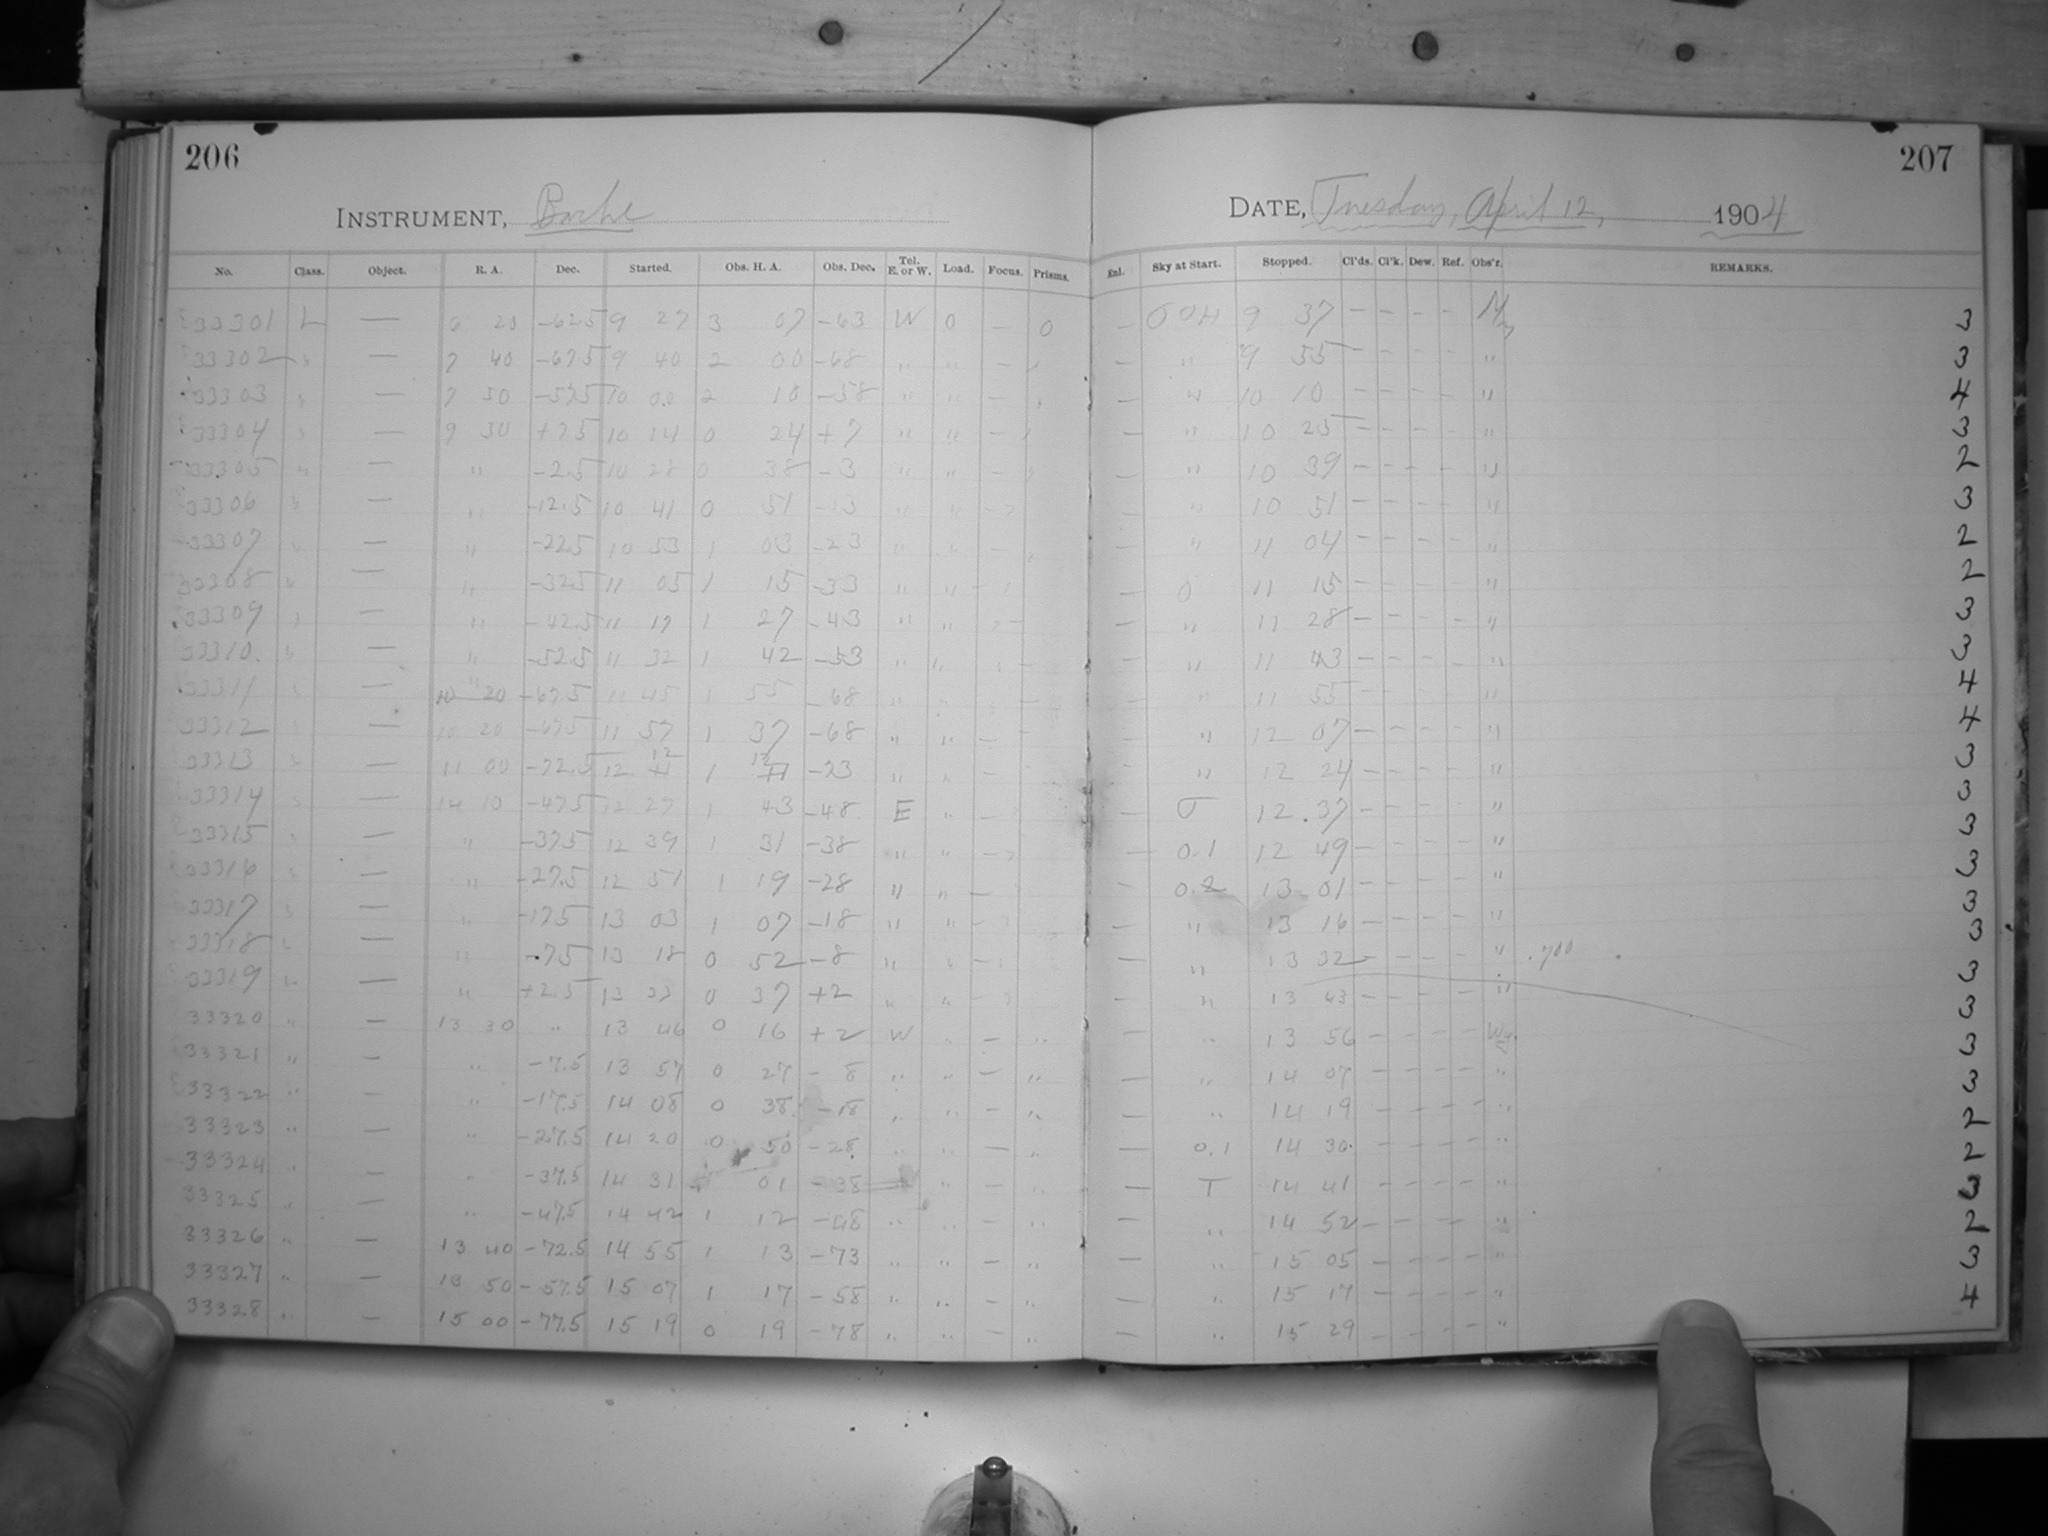 206
207
INSTRUMENT, Bache
DATE, Tuesday, April 12, 1904
No. Class. Object. R. A. Dec. Started. Obs. H. A. Obs. Dec. Tel. E. or W. Load. Focus. Prisms. Enl. Sky at Start. Stopped. Cl'ds. Cl'k. Dew. Ref. Obs'r. REMARKS.
33301 L — 6 20 -62.5 9 27 3 07 -63 W 0 — 0 — 9 37 — — — — 3
33302 " — 7 40 -67.5 9 40 2 00 -68 " " — " — " 9 55 — — — — " 3
33303 " — 7 50 -57.5 10 00 2 10 -58 " " — " — " 10 10 — — — — " 4
33304 " — 9 50 +7.5 10 14 0 24 +7 " " — " — " 10 25 — — — — " 3
33305 " — " -2.5 10 28 0 38 -3 " " — " — " 10 39 — — — — " 2
33306 " — " -12.5 10 41 0 51 -13 " " — " — " 10 51 — — — — " 3
33307 " — " -22.5 10 53 1 03 -23 " " — " — " 11 04 — — — — " 2
33308 " — " -32.5 11 05 1 15 -33 " " — " — 0 11 15 — — — — " 2
33309 " — " -42.5 11 17 1 27 -43 " " — " — " 11 28 — — — — " 3
33310 " — " -52.5 11 32 1 42 -53 " " — " — " 11 43 — — — — " 3
33311 " — " 10 20 -67.5 11 45 1 55 -68 " " — " — " 11 55 — — — — " 4
33312 " — 10 20 -67.5 11 57 1 37 -68 " " — " — " 12 07 — — — — " 4
33313 " — 11 00 -72.5 12 12 1 12 -73 " " — " — " 12 24 — — — — " 3
33314 " — 14 10 -47.5 12 27 1 43 -48 E " — " — 12 37 — — — — " 3
33315 " — " -37.5 12 39 1 31 -38 " " — " — 0.1 12 49 — — — — " 3
33316 " — " -27.5 12 51 1 19 -28 " " — " — 0.2 13 01 — — — — " 3
33317 " — " -17.5 13 03 1 07 -18 " " — " — " 13 16 — — — — " 3
33318 " — " -7.5 13 18 0 52 -8 " " — " — " 13 32 — — — — " .700 3
33319 " — " +2.5 13 33 0 37 +2 " " — " — " 13 43 — — — — " 3
33320 " — 13 30 " 13 46 0 16 +2 W " — " — " 13 56 — — — — 3
33321 " — " -7.5 13 57 0 27 -8 " " — " — " 14 07 — — — — " 3
33322 " — " -17.5 14 08 0 38 -18 " " — " — " 14 19 — — — — " 3
33323 " — " -27.5 14 20 0 50 -28 " " — " — 0.1 14 30 — — — — " 2
33324 " — " -37.5 14 31 1 01 -38 " " — " — T 14 41 — — — — " 2
33325 " — " -47.5 14 42 1 12 -48 " " — " — " 14 52 — — — — " 3
33326 " — 13 40 -72.5 14 55 1 13 -73 " " — " — " 15 05 — — — — " 2
33327 " — 13 50 -57.5 15 07 1 17 -58 " " — " — " 15 17 — — — — " 3
33328 " — 15 00 -77.5 15 19 0 19 -78 " " — " — " 15 29 — — — — " 4